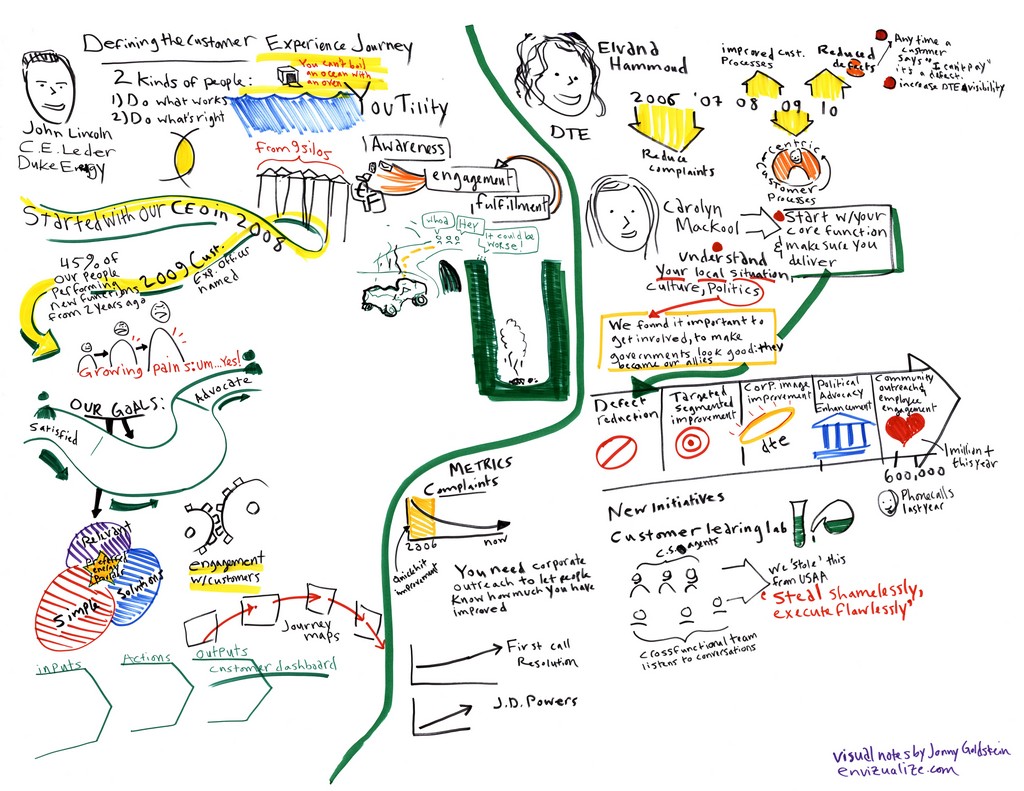 Defining the Customer Experience Journey
2 Kinds of people:
1) Do what works
2) Do what's right
You can't boil
an ocean with
an oven
YouTility
John Lincoln
C.E. Leder
Duke Energy
From 9 silos
Awareness
engagement
fulfillment
Started with our CEO in 2008
2009 Cust.
exp. officer
named
45% of
our people
performing
new functions
from 2 years ago
whoa
Hey
it could be
worse!
Growing pains: um...Yes!
OUR GOALS:
Satisfied
Advocate
Relevant
Preferred
energy
Provider
Simple
Solutions
engagement
w/customers
Journey
maps
inputs
Actions
outputs
Customer dashboard
METRICS
Complaints
2006
now
improvement
You need corporate
outreach to let people
Know how much you have
improved
First call
Resolution
J.D. Powers
Elvana
Hammoud
DTE
2006 '07 08 09 10
Reduce
complaints
improved cust.
Processes
Reduced
defects
Any time a
customer
says "I can't pay"
it's a defect.
increase DTE visibility
centric
customer
Processes
Carolyn
Mackool
Start w/your
core function
& make sure you
deliver
understand
your local situation,
culture, Politics
We found it important to
get involved, to make
governments look good: they
became our allies
Defect
reduction
Targeted
segmented
improvement
Corp. image
improvement
dte
Political
Advocacy
Enhancement
Community
outreach,
employee
engagement
600,000
1 million +
this year
Phonecalls
last year
New Initiatives
Customer learing lab
C.S. agents
we 'stole' this
from USAA
"Steal shamelessly,
execute flawlessly"
crossfunctional team
listens to conversations
visual notes by Jonny Goldstein
envizualize.com